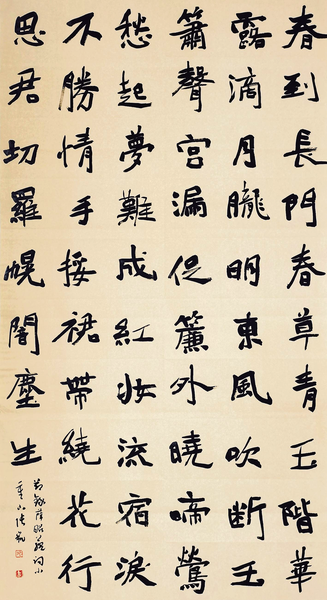 春到長門春草青玉階華
露滴月朧明東風吹斷玉
簫聲宮漏促簾外曉啼鶯
愁起夢難成紅妝流宿淚
不勝情手挼裙帶繞花行
思君切羅幌闇塵生
錄薛昭蘊詞小
重山張